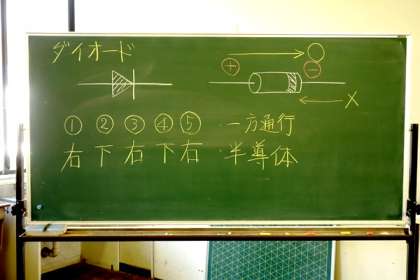 ダイオード
+ -
×
① ② ③ ④ ⑤ 一方通行
右 下 右 下 右 半導体